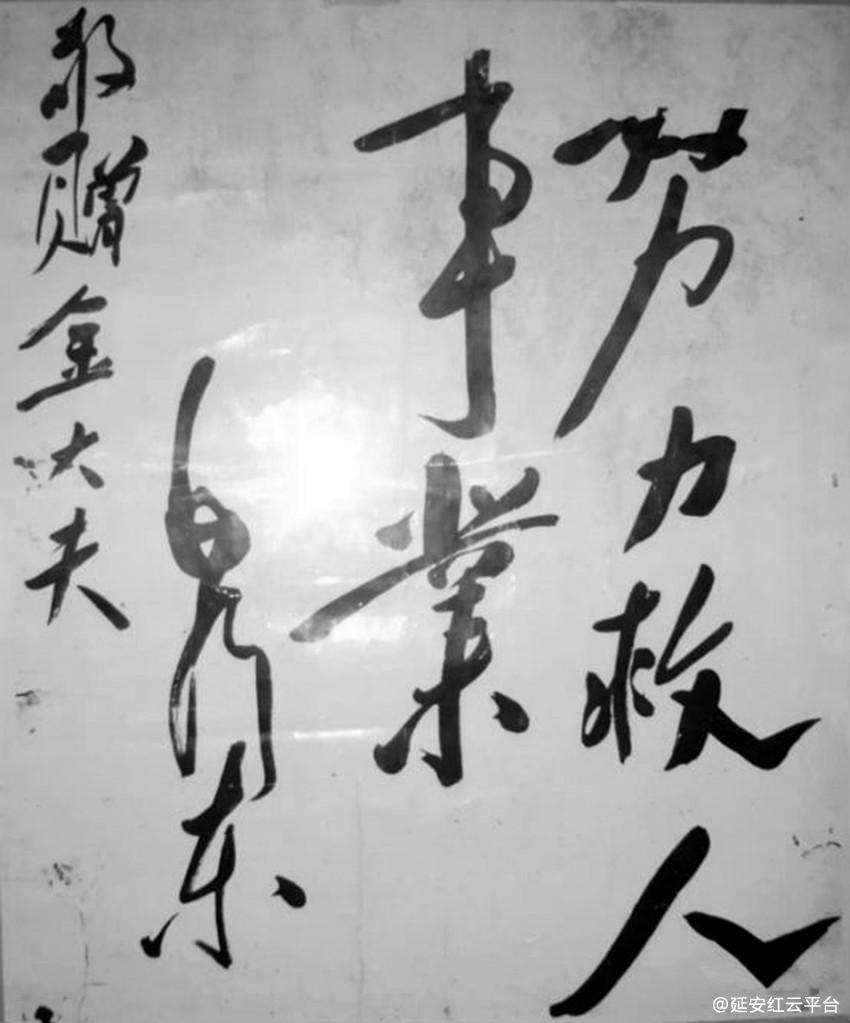 努力救人
事業
毛泽东
敬赠金大夫
@延安红云平台